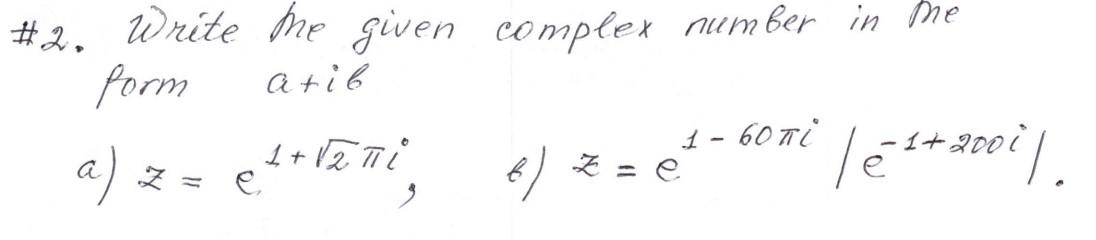 #2. Write the given complex number in the
form a+ib
a) z = e^{1+√2 πi}, b) z = e^{1-60πi} |e^{-1+200i}|.